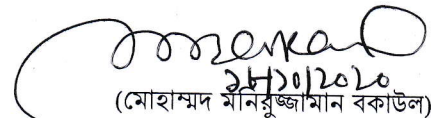 ১৮/১০/২০২০
(মোহাম্মদ মনিরুজ্জামান বকাউল)